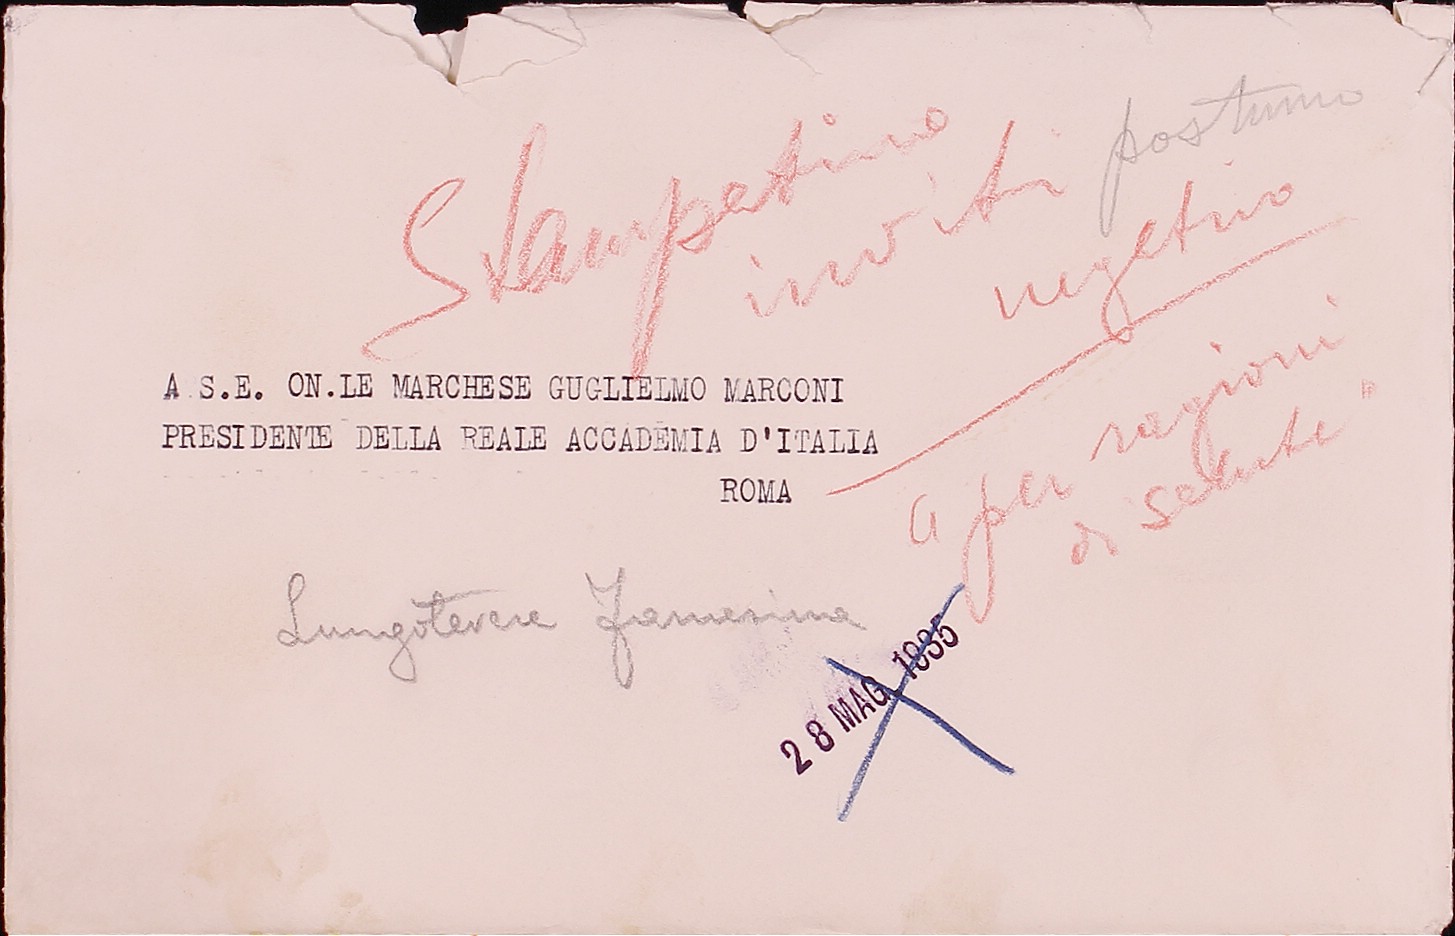 Stampatino
inviti
postumo
negativo
A S.E. ON.LE MARCHESE GUGLIELMO MARCONI
PRESIDENTE DELLA REALE ACCADEMIA D'ITALIA
ROMA
"per ragioni
di salute"
Lungotevere Farnesina
28 MAG. 1935